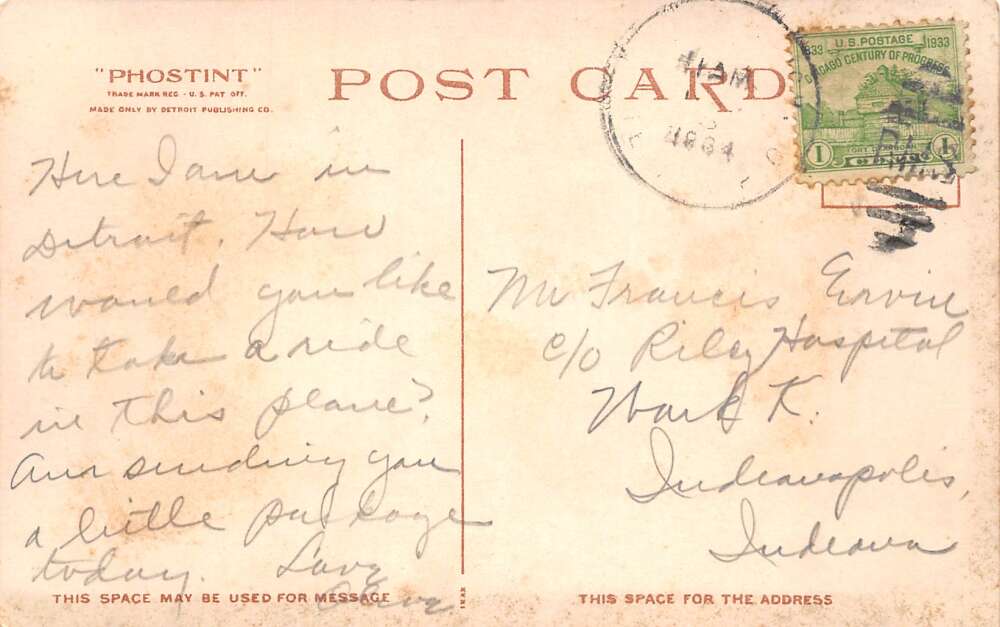 "PHOSTINT"
TRADE MARK REG - U.S. PAT OFF.
MADE ONLY BY DETROIT PUBLISHING CO.
POST CARD
11 AM
1934
1833 U.S. POSTAGE 1933
CHICAGO CENTURY OF PROGRESS
FORT DEARBORN
1 1
Here I am in
Detroit. How
would you like
to take a ride
in this plane?
Am sending you
a little package
today. Love
Mr Francis Ervin
c/o Riley Hospital
Ward K.
Indianapolis,
Indiana
THIS SPACE MAY BE USED FOR MESSAGE
THIS SPACE FOR THE ADDRESS